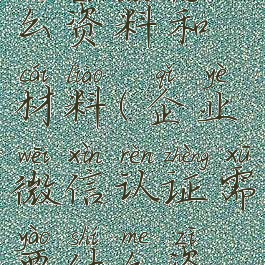 么资料和
cái liào qǐ yè
材料(企业
wēi xìn rèn zhèng xū
微信认证需
yào shí me zī
要什么资